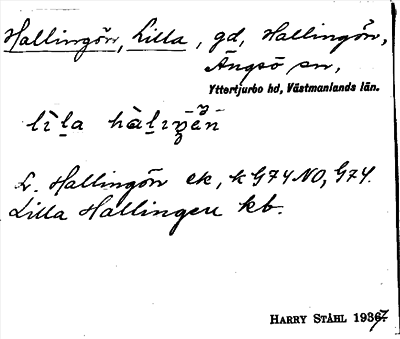 Hallingön, Lilla, gd, Hallingön,
Ängsö sn,
Yttertjurbo hd, Västmanlands län.
L. Hallingön ek, k G74 NO, G74.
Lilla Hallingen kb.
HARRY STÅHL 1937